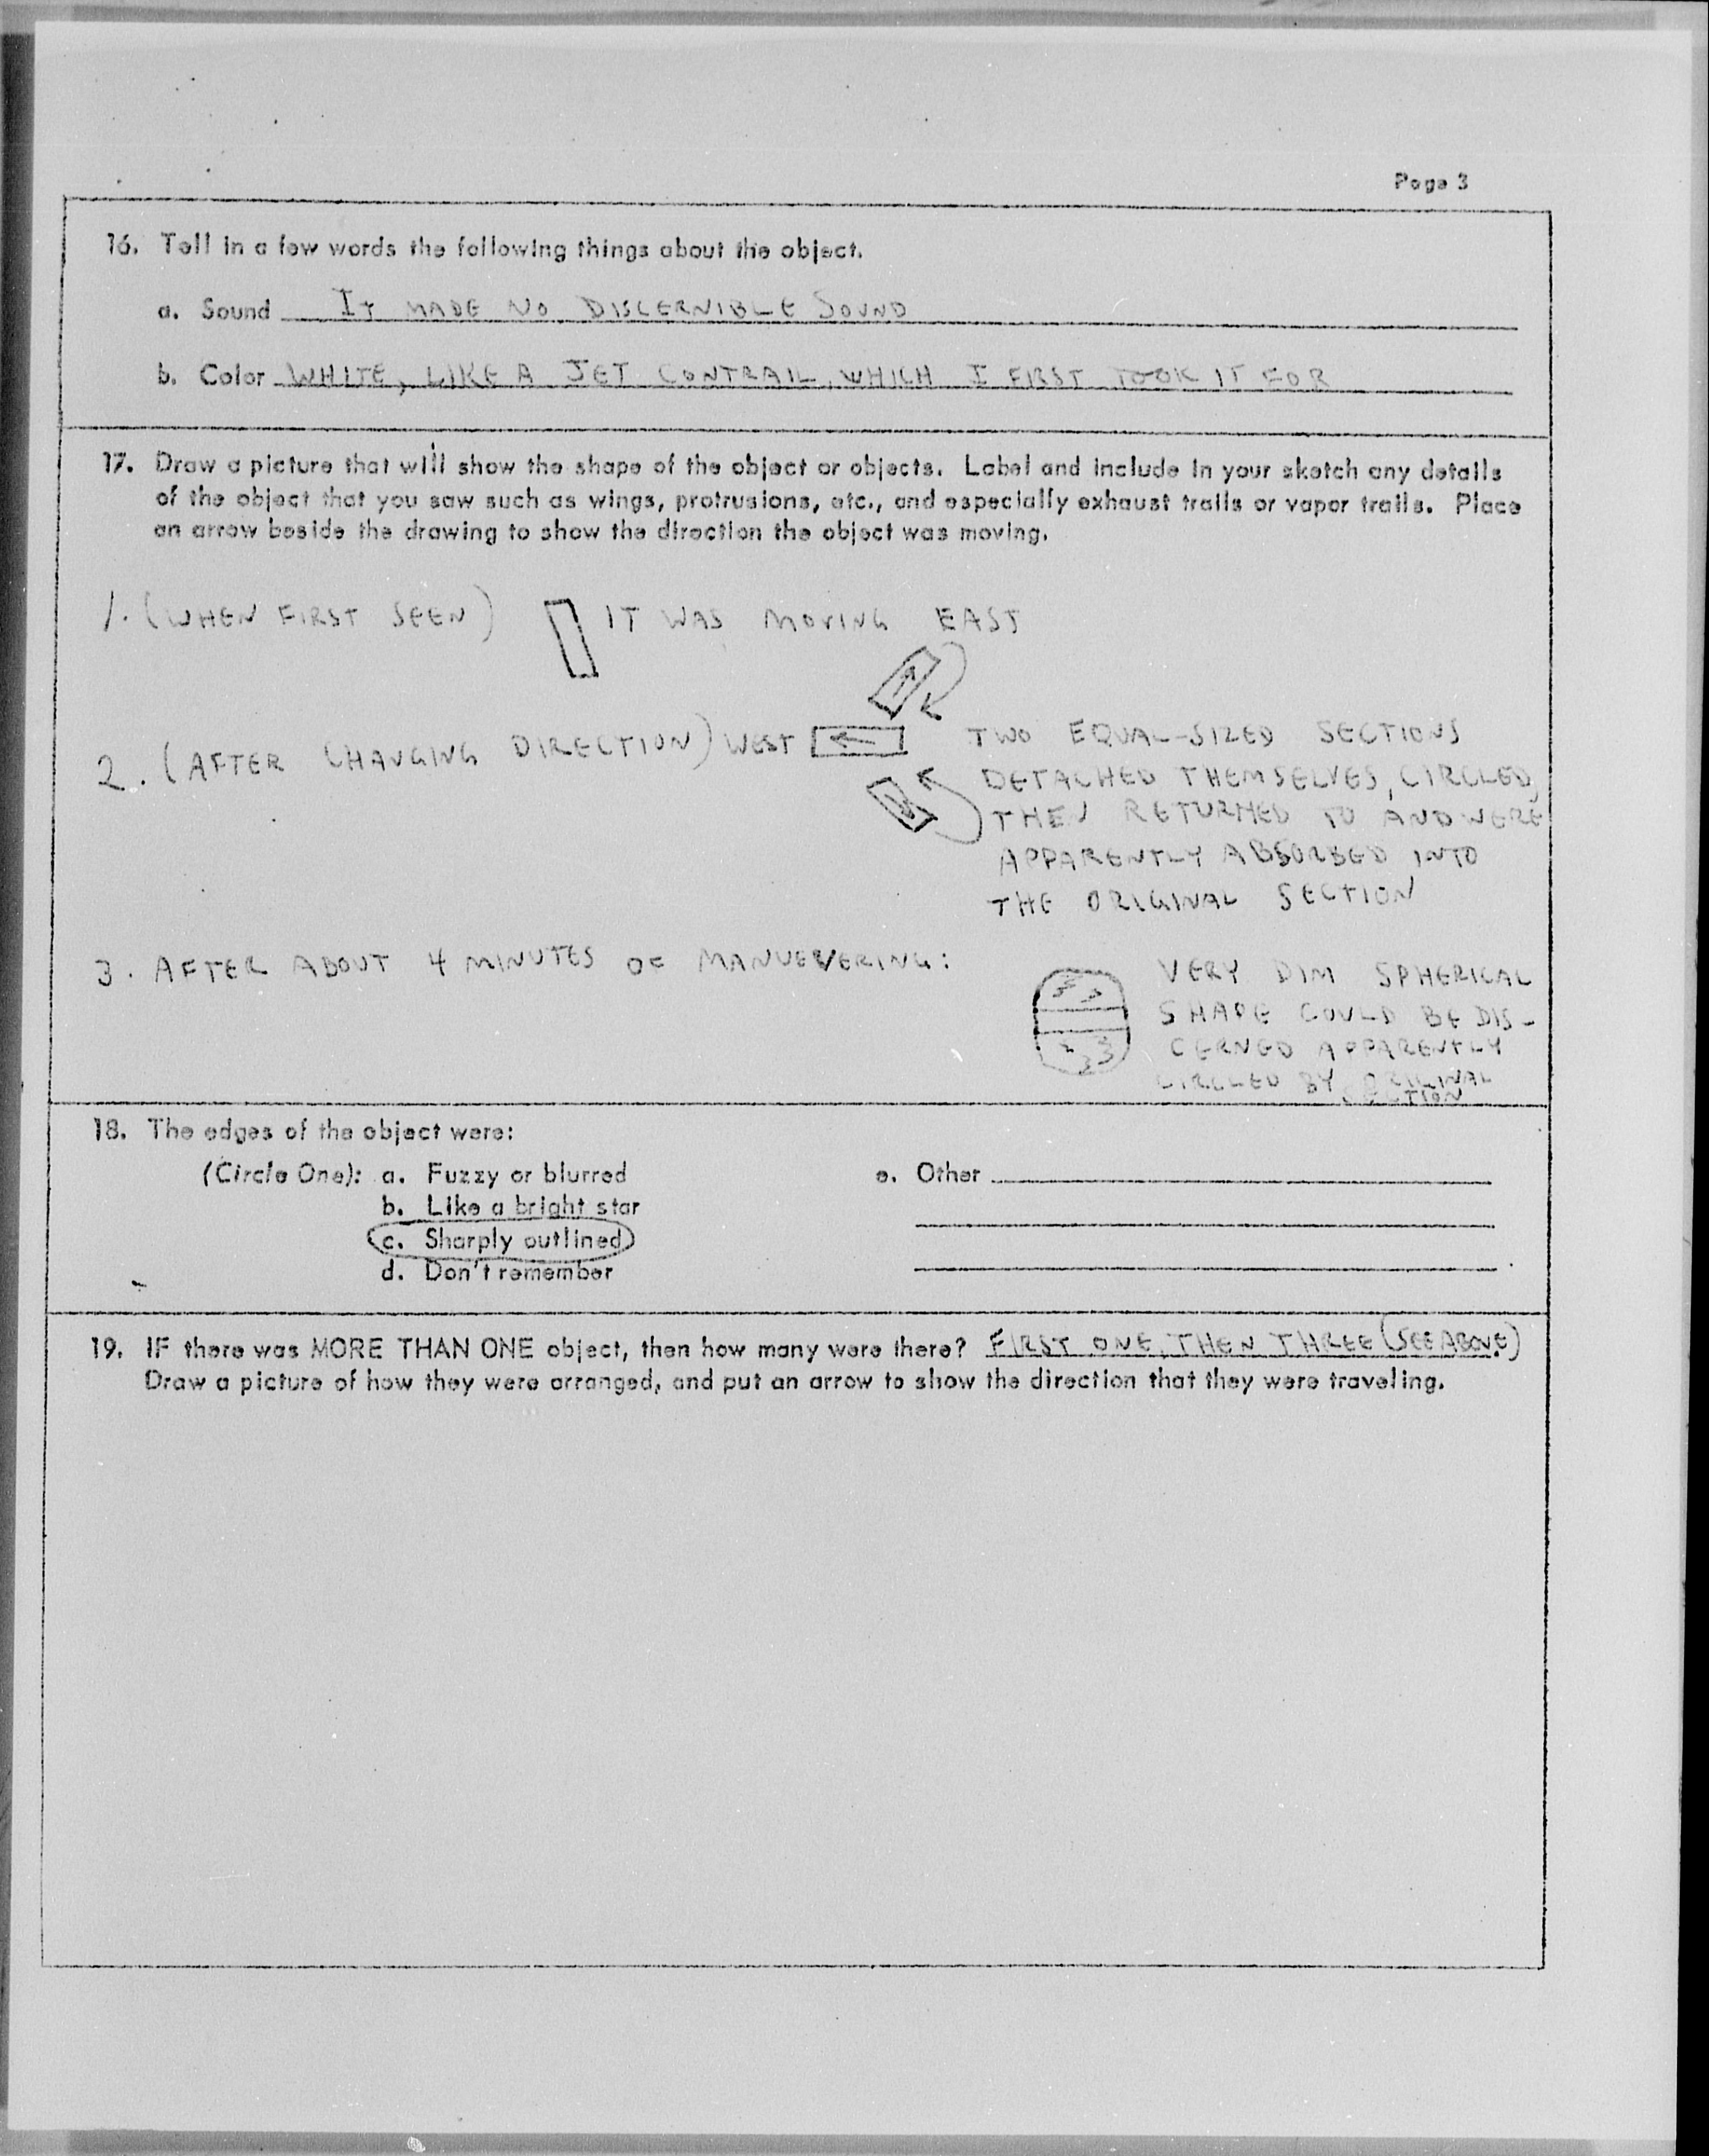 Page 3
16. Tell in a few words the following things about the object.
a. Sound IT MADE NO DISCERNIBLE SOUND
b. Color WHITE, LIKE A JET CONTRAIL, WHICH I FIRST TOOK IT FOR
17. Draw a picture that will show the shape of the object or objects. Label and include in your sketch any details
of the object that you saw such as wings, protrusions, etc., and especially exhaust trails or vapor trails. Place
an arrow beside the drawing to show the direction the object was moving.
1. (WHEN FIRST SEEN) IT WAS MOVING EAST
2. (AFTER CHANGING DIRECTION) WEST
TWO EQUAL-SIZED SECTIONS
DETACHED THEMSELVES, CIRCLED,
THEN RETURNED TO AND WERE
APPARENTLY ABSORBED INTO
THE ORIGINAL SECTION
3. AFTER ABOUT 4 MINUTES OF MANUEVERING:
VERY DIM SPHERICAL
SHAPE COULD BE DIS-
CERNED APPARENTLY
CIRCLED BY ORIGINAL
SECTION
18. The edges of the object were:
(Circle One): a. Fuzzy or blurred
b. Like a bright star
c. Sharply outlined
d. Don't remember
e. Other
19. IF there was MORE THAN ONE object, then how many were there? FIRST ONE, THEN THREE (SEE ABOVE)
Draw a picture of how they were arranged, and put an arrow to show the direction that they were traveling.